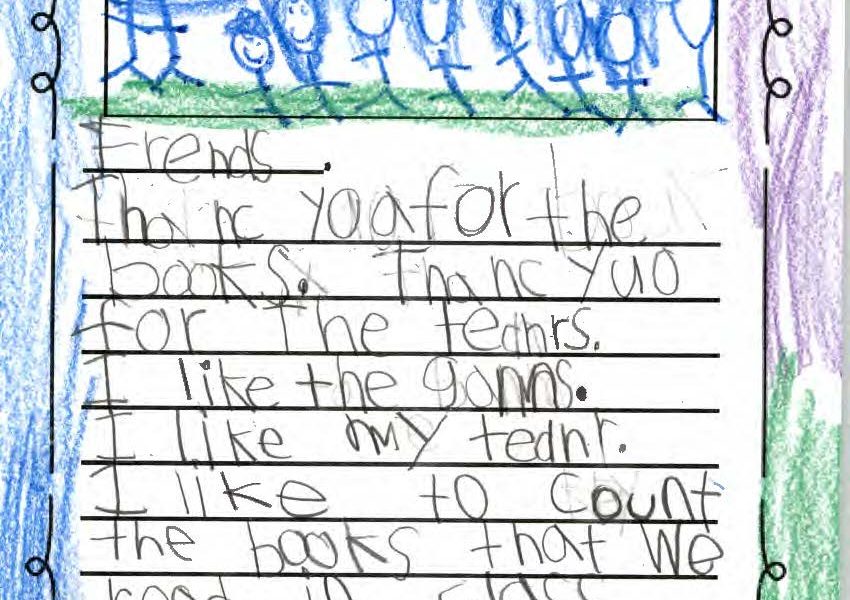 Frends.
Thanc yoa for the
books. Thanc yuo
for the teahrs.
I like the gonns.
I like my teahr.
I like to count
the books that we
read in class